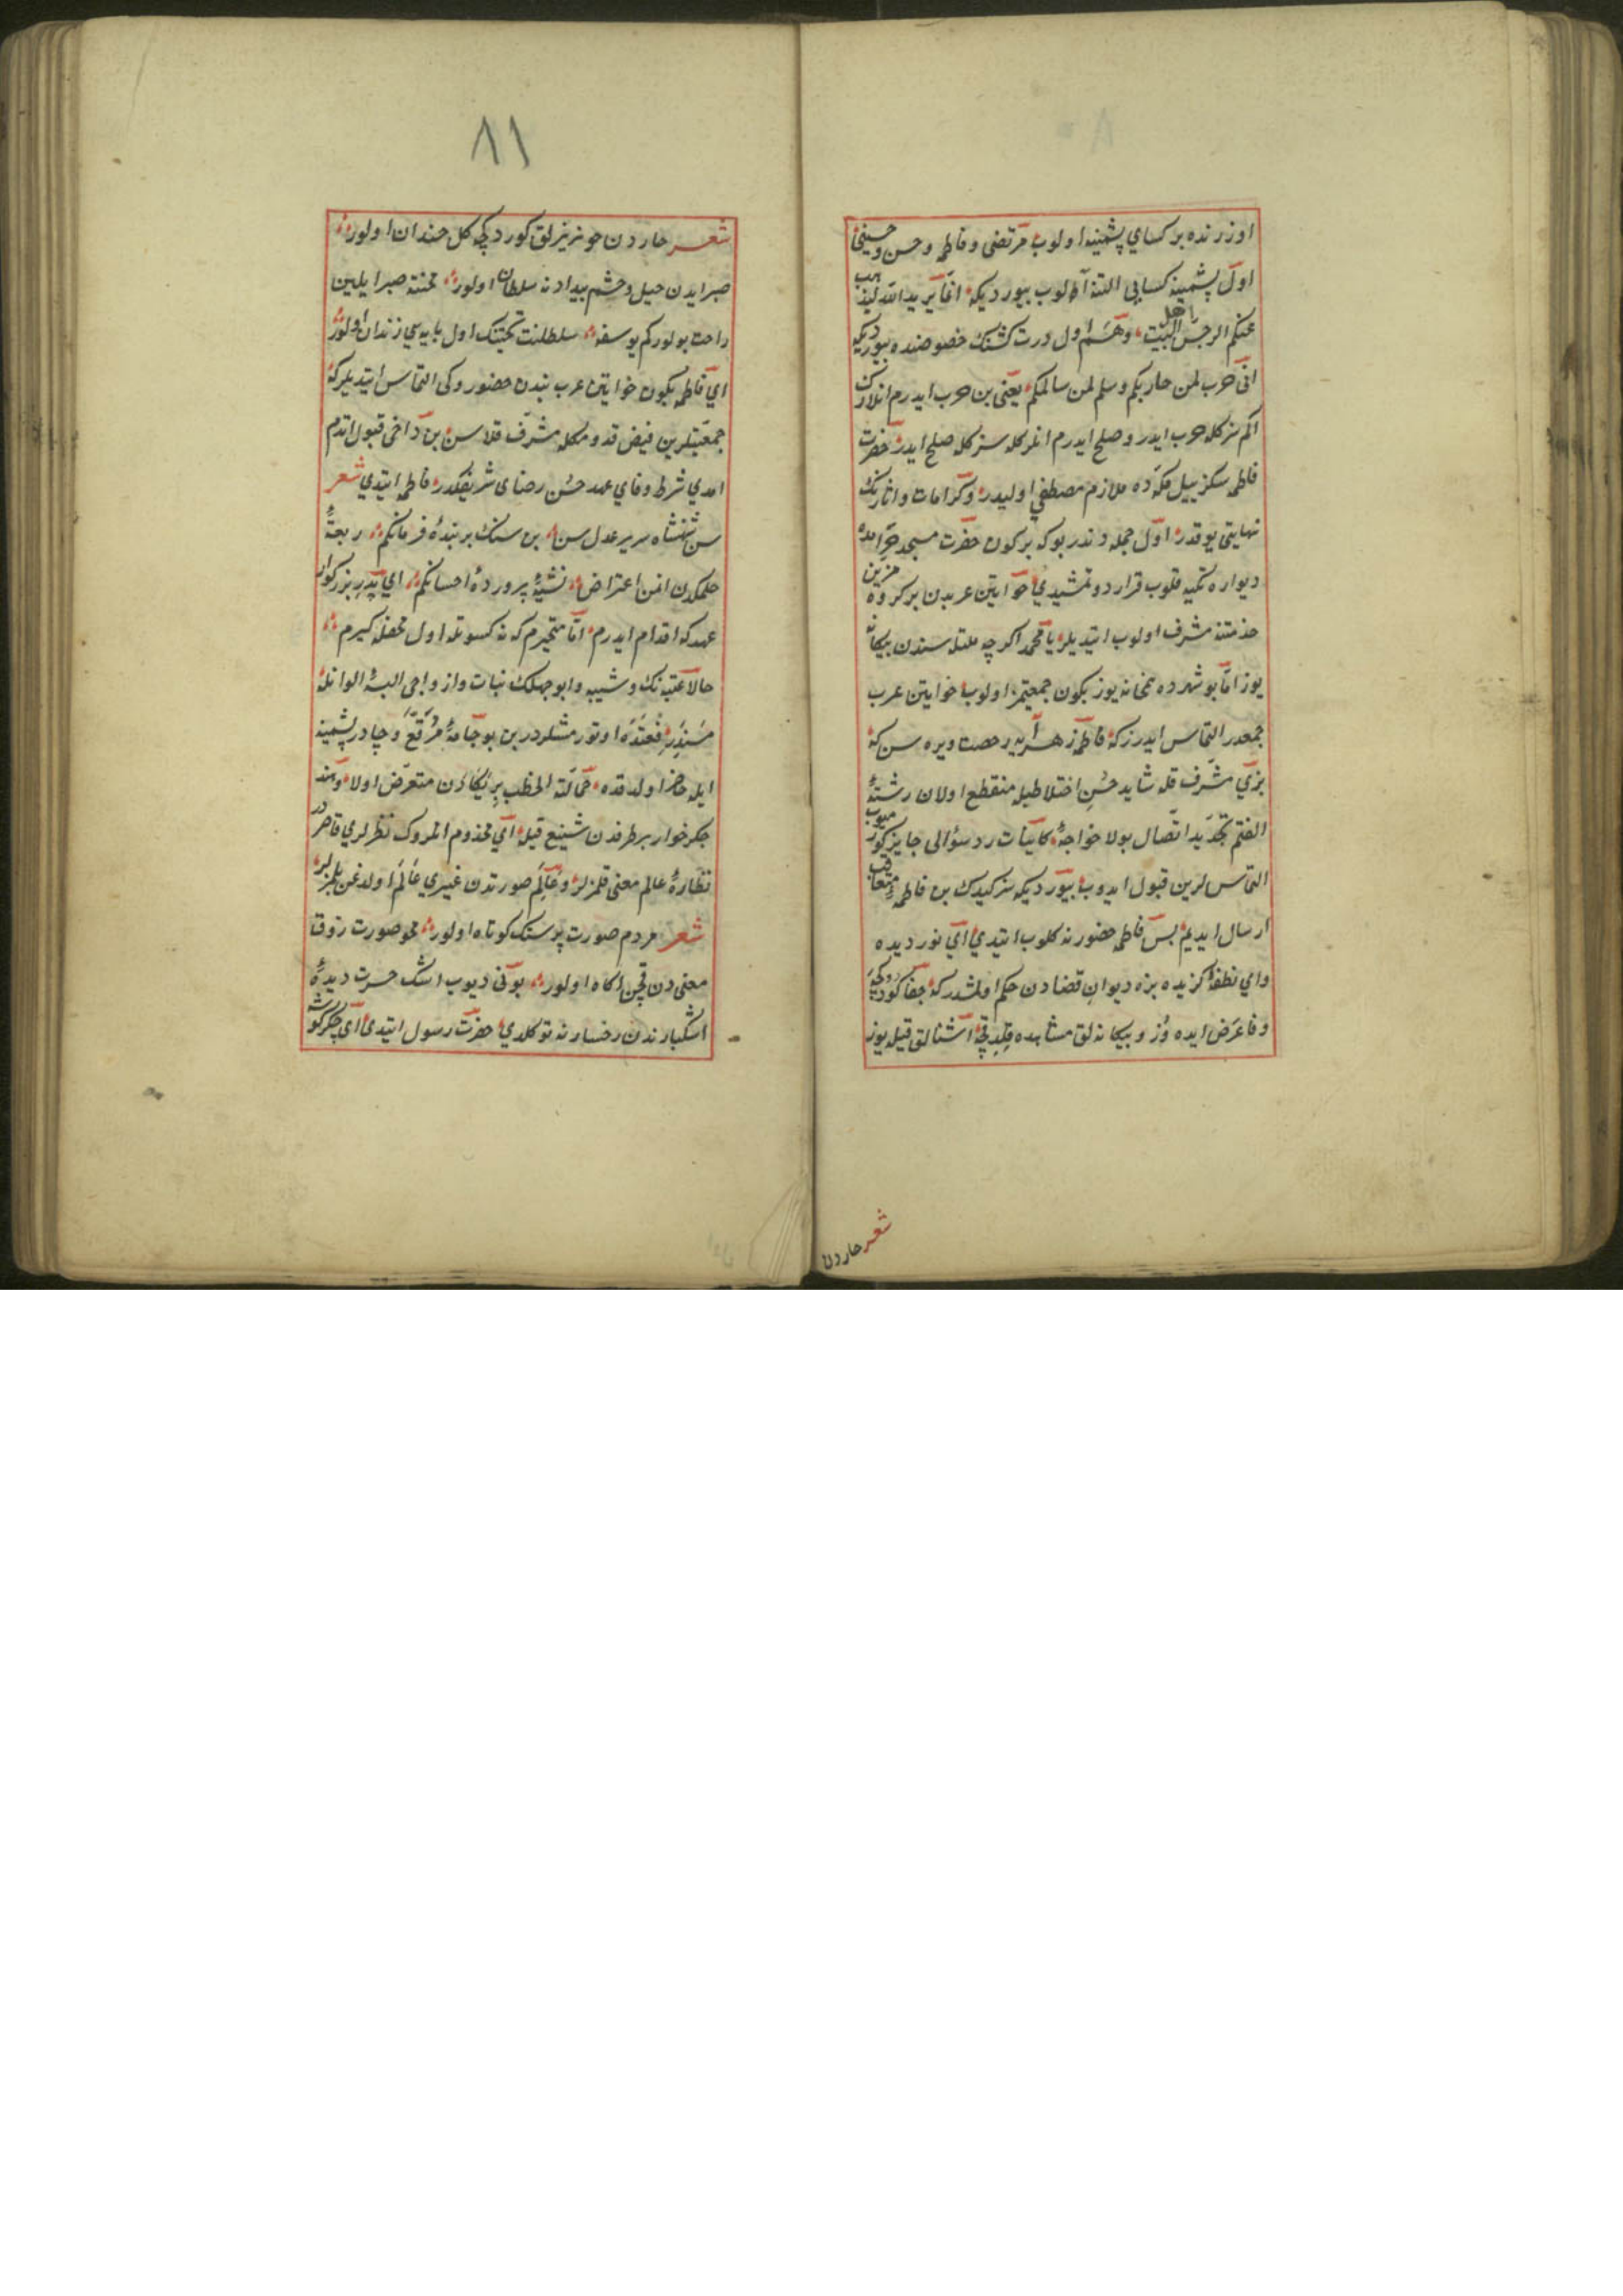 اوزرنده بر كساي پشمينه اولوب مرتضى و فاطمه و حسن و حسيني
اول پشمينه كسايى التنه آلوب بيورديكه انما يريد الله ليذهب
عنكم الرجس اهل البيت وهم اول درت كشنك خصوصنده بيورديكه
انى حرب لمن حاربكم وسلم لمن سالمكم يعنى بن حرب ايدرم انلارك
كم سزكله حرب ايدر و صلح ايدرم انلركله سزكله صلح ايدر حضرت
فاطمه سكز ييل مكه ده ملازم مصطفي اوليدر و كرامات و اثارنك
نهايتى يوقدر اول جمله دندر بو كه بر كون حضرت مسجد حرامده
ديواره تكيه قلوب قرار دوتمشيدي خواتين عربدن بر كروه مزين
خدمتنه مشرف اولوب ايتديلر يا محمد اكرچه ملتله سندن بيكانه
يوز اما بو شهرده همخانه يوز بكون جمعيتمز اولوب خواتين عرب
جمعدر التماس ايدرز كه فاطمه زهرآيه رخصت ويره سن كه
بزي مشرف قله شايد حسن اختلاطيله منقطع اولان رشتهٔ
الفتم تجديد اتصال بولا خواجهٔ كاينات رد سؤالى جايز كورميوب
التماس لرين قبول ايدوب بيورديكه سز كيدك بن فاطمه متعاقب
ارسال ايديم بس فاطمه حضورنه كلوب ايتدي اي نور ديده
واي نطفهٔ كزيده بزه ديوان قضادن حكم اولمشدر كه جفا كوردكجه
وفا عرض ايده وز و بيكانه لق مشاهده قلدقچه آشنالق قيله يوز
شعر خاردن
٨١
شعر خاردن خونريزلق كوردكچه كل خندان اولور
صبر ايدن خيل و حشم بيدادنه سلطان اولور محنته صبر ايلين
راحت بولور كم يوسفه سلطنت تختنك اول پايه سي زندان اولور
اي فاطمه بكون خواتين عرب بندن حضوروكى التماس ايتديلر كه
جمعيتلرين فيض قدومكله مشرف قلاسن بن داخى قبول اتدم
امدي شرط وفاي عهد حسن رضاى شريفكدر فاطمه ايتدي شعر
سن شهنشاه سرير عدل سن بن سنك بر بندهٔ فرمانكم ربقهٔ
حكمكدن ايتمن اعتراض نشئهٔ پروردهٔ احسانكم اي پدر بزركوار
عهدكه اقدام ايدرم اما متحيرم كه نه كسوتله اول محفله كيرم
حالا عتبه نك و شيبه و ابو جهلك بنات و ازواجى البسهٔ الوانله
مسندده اوتورمشلردر بن بو جامهٔ مرقع و چادر پشمينه
ايله حاضر اولدقده حمالة الحطب بر يكادن متعرض اولا و هند
جكرخوار بر طرفدن تشنيع قيله اي مخدوم انلروك نظرلري قاصردر
نظارهٔ عالم معنى قلمزلر و عالم صورتدن غيري عالم اولدغن بلمزلر
شعر مردم صورت پرستك كوتاه اولور محو صورت ذوق
معنى دن قچن اكاه اولور بونى ديوب اشك حسرت ديدهٔ
اشكبارندن رخسارنه توكلدي حضرت رسول ايتدى اى جكركوشه